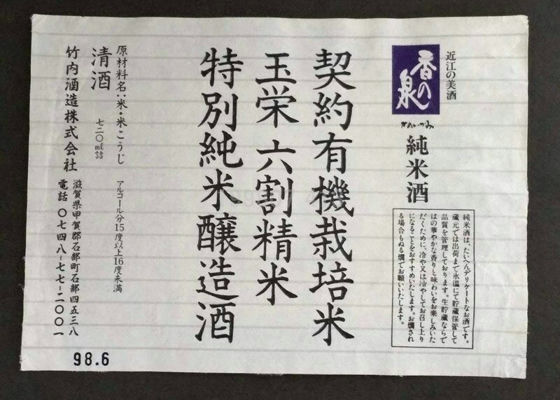 近江の美酒
香の泉
純米酒
純米酒は、たいへんデリケートなお酒です。
蔵元では出荷まで氷温にて貯蔵保管して
品質を管理しております。生貯蔵ならで
はの華やかな香りと味わいをお楽しみいた
だくために、冷や又は冷やしてお召し上り
になることをおすすめいたします。お燗され
る場合もぬる燗でお願いいたします。
契約有機栽培米
玉栄 六割精米
特別純米醸造酒
原材料名:米・米こうじ
アルコール分15度以上16度未満
清酒 七二〇ml詰
竹内酒造株式会社
滋賀県甲賀郡石部町石部四五三八
電話 〇七四八-七七-二〇〇一
98.6